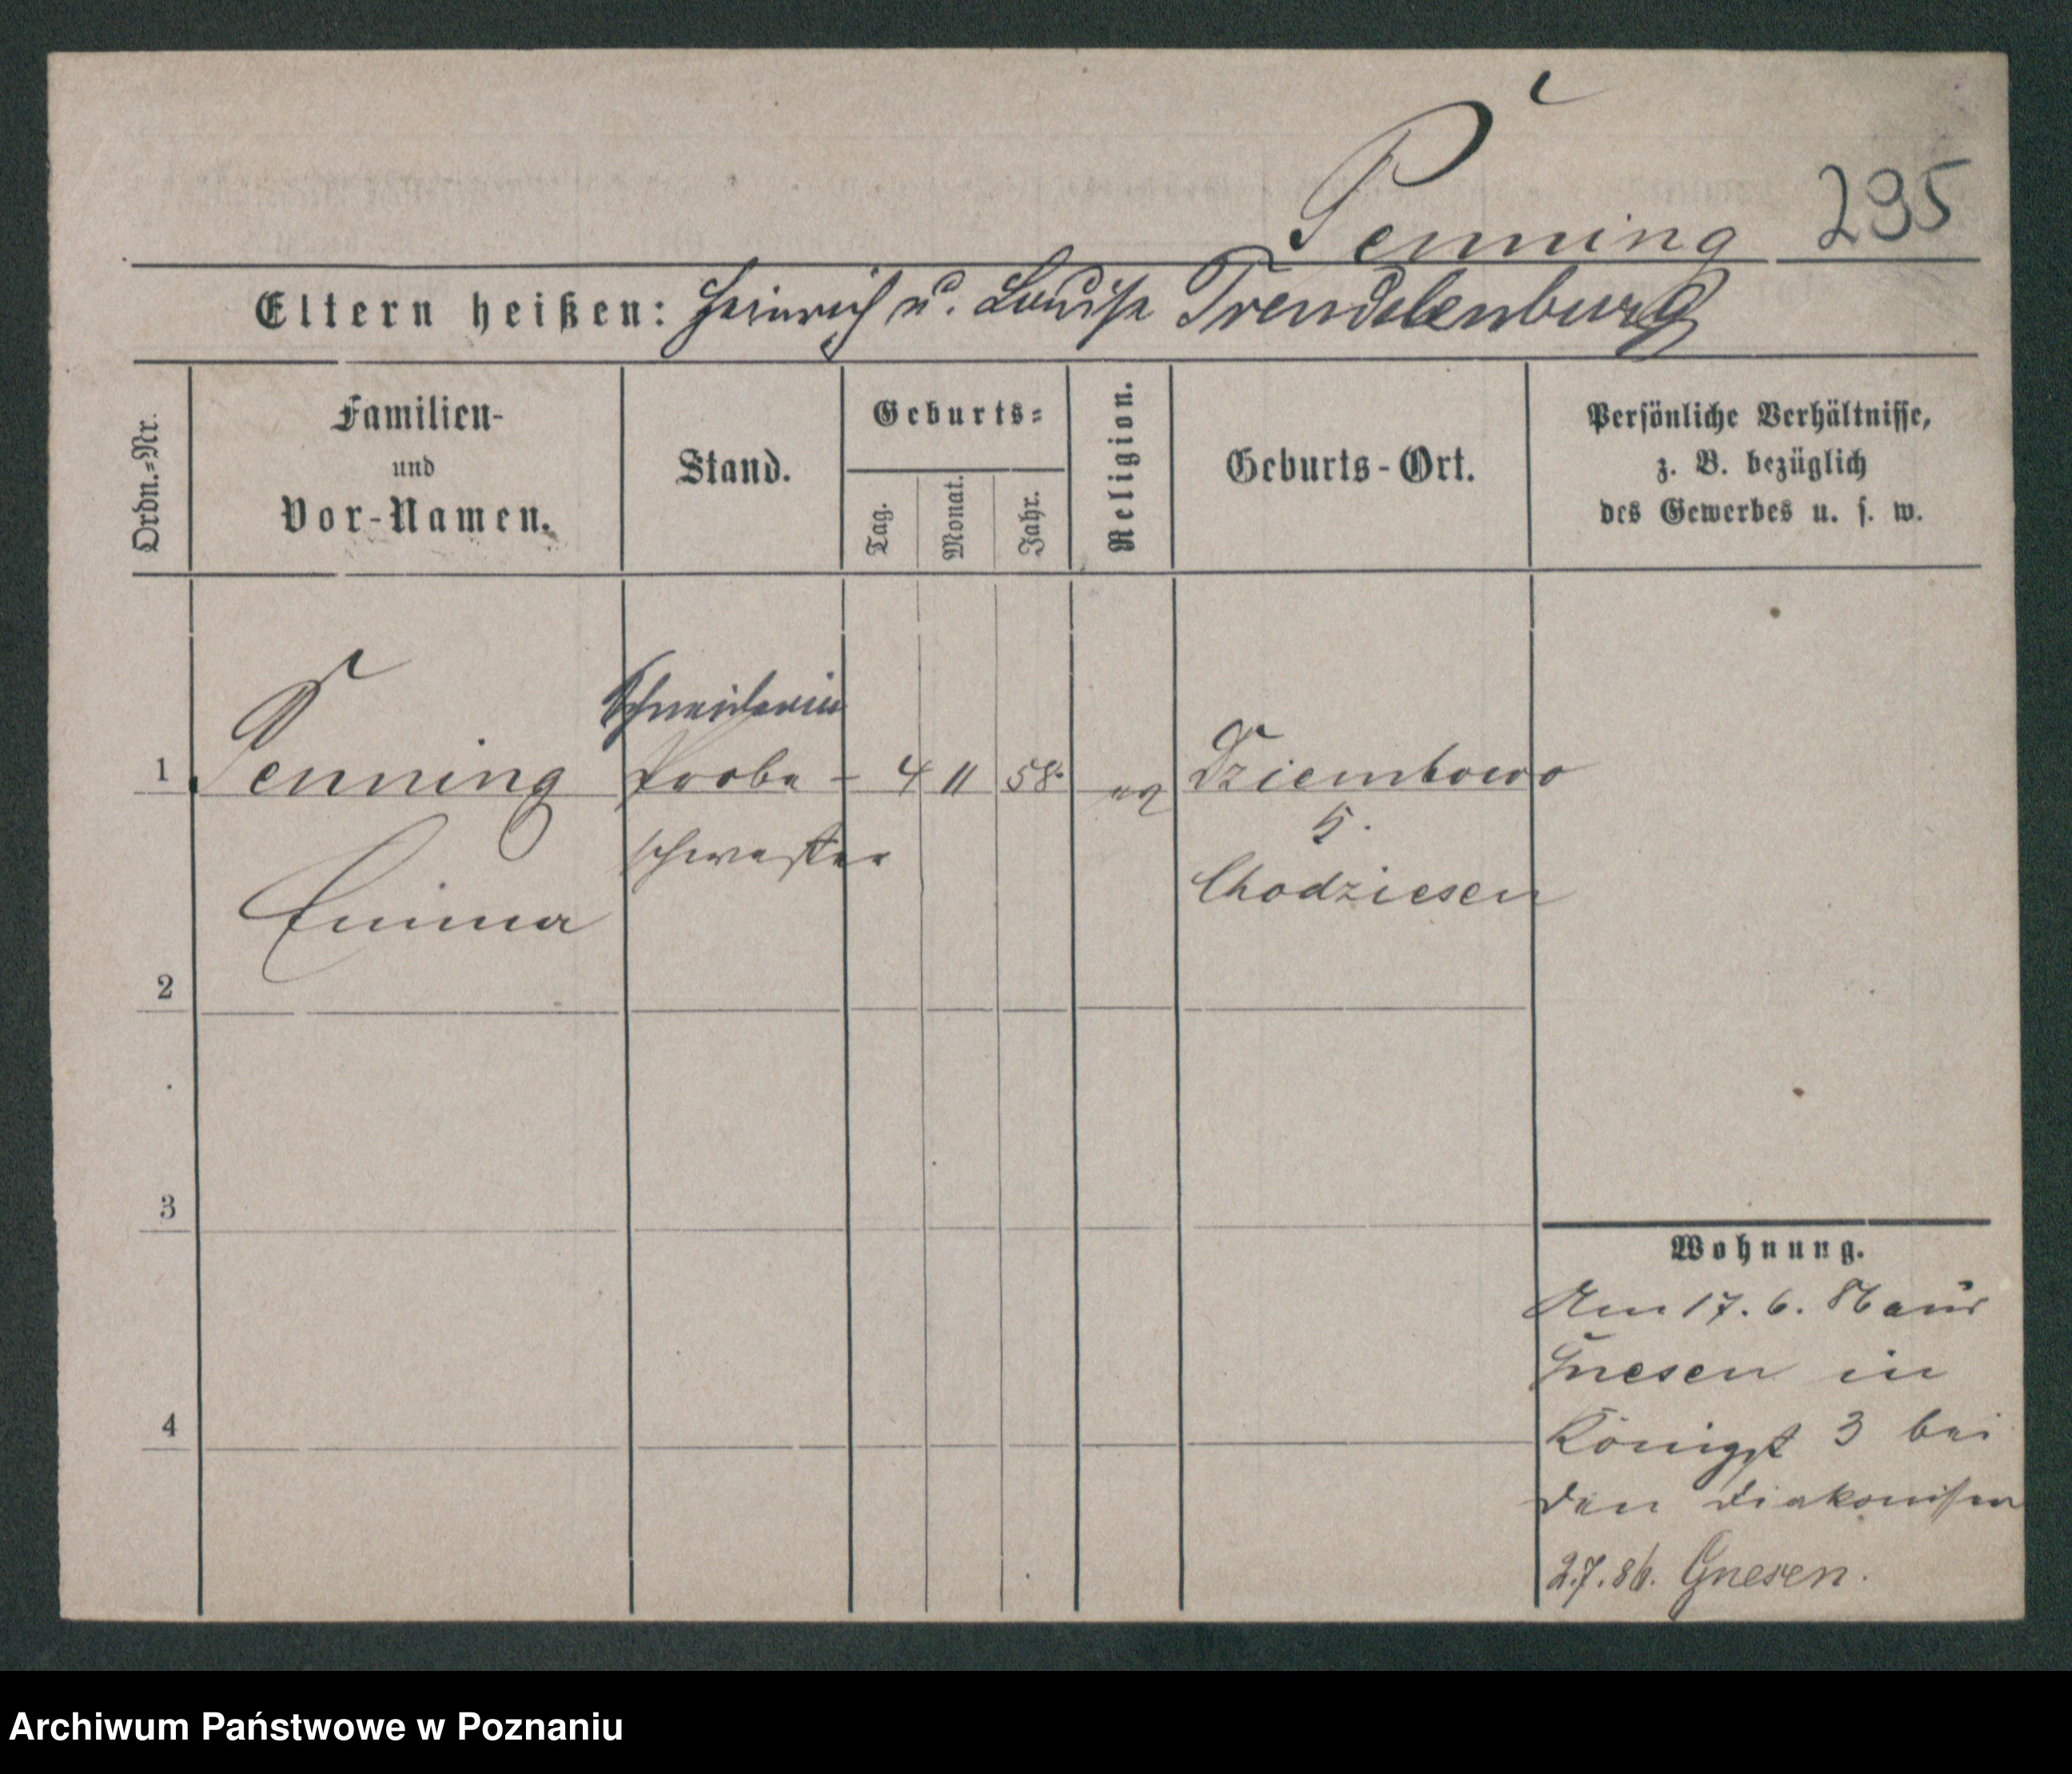 Penning 295
Eltern heißen: Heinrich u. Louise Trendelenburg
Ordn.=Nr.
Familien-
und
Vor-Namen.
Stand.
Geburts=
Tag.
Monat.
Jahr.
Religion.
Geburts-Ort.
Persönliche Verhältnisse,
z. B. bezüglich
des Gewerbes u. s. w.
Schneiderin
1 Penning Probe- 4 11 58 ev Dziembowo
schwester
Chodziesen
Emma
2
3
4
Wohnung.
Am 17. 6. 86 aus
Gnesen in
Königst 3 bei
den Diakonissen
2.7.86. Gnesen.
Archiwum Państwowe w Poznaniu